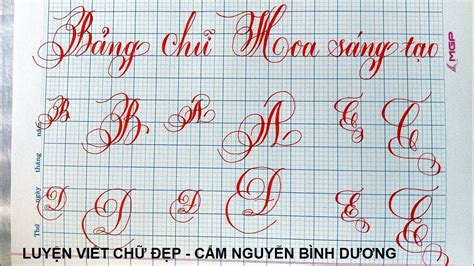 Bảng chữ Hoa sáng tạo
MGP
B B A A
Thứ ngày tháng năm
LUYỆN VIẾT CHỮ ĐẸP - CẨM NGUYỄN BÌNH DƯƠNG